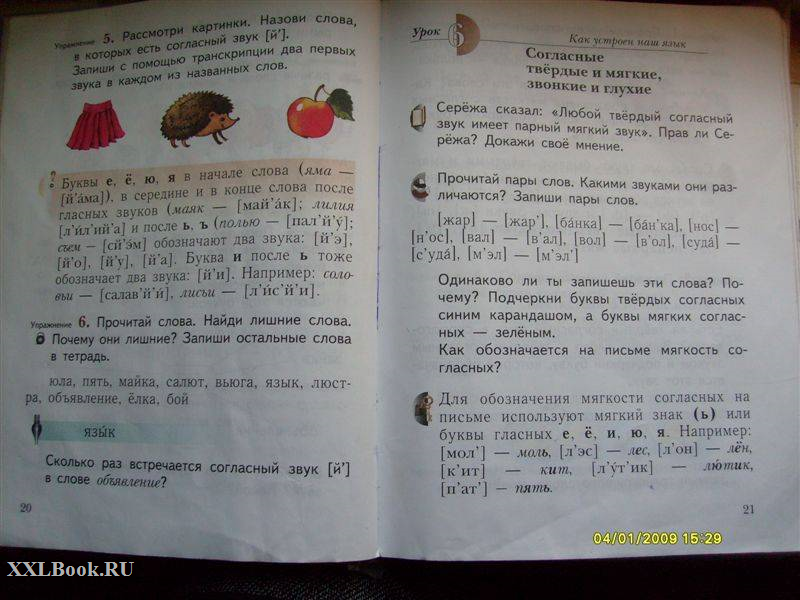 Упражнение 5. Рассмотри картинки. Назови слова,
в которых есть согласный звук [й'].
Запиши с помощью транскрипции два первых
звука в каждом из названных слов.
Буквы е, ё, ю, я в начале слова (яма —
[й'áма]), в середине и в конце слова после
гласных звуков (маяк — [май'áк]; лилия
[л'и́л'ий'а] и после ь, ъ (полью — [пал'й'ý];
съем — [сй'э́м] обозначают два звука: [й'э],
[й'о], [й'у], [й'а]. Буква и после ь тоже
обозначает два звука: [й'и]. Например: соло-
вьи — [салав'й'и́], лисьи — [л'и́с'й'и].
Упражнение 6. Прочитай слова. Найди лишние слова.
Почему они лишние? Запиши остальные слова
в тетрадь.
юла, пять, майка, салют, вьюга, язык, люст-
ра, объявление, ёлка, бой
язы́к
Сколько раз встречается согласный звук [й']
в слове объявление?
20
Урок 6
Как устроен наш язык
Согласные
твёрдые и мягкие,
звонкие и глухие
Серёжа сказал: «Любой твёрдый согласный
звук имеет парный мягкий звук». Прав ли Се-
рёжа? Докажи своё мнение.
Прочитай пары слов. Какими звуками они раз-
личаются? Запиши пары слов.
[жар] — [жар'], [бáнка] — [бáн'ка], [нос] —
[н'ос], [вал] — [в'ал], [вол] — [в'ол], [судá] —
[с'удá], [м'эл] — [м'эл']
Одинаково ли ты запишешь эти слова? По-
чему? Подчеркни буквы твёрдых согласных
синим карандашом, а буквы мягких соглас-
ных — зелёным.
Как обозначается на письме мягкость со-
гласных?
Для обозначения мягкости согласных на
письме используют мягкий знак (ь) или
буквы гласных е, ё, и, ю, я. Например:
[мол'] — моль, [л'эс] — лес, [л'он] — лён,
[к'ит] — кит, [л'ýт'ик] — лютик,
[п'ат'] — пять.
21
04/01/2009 15:29
XXLBook.RU